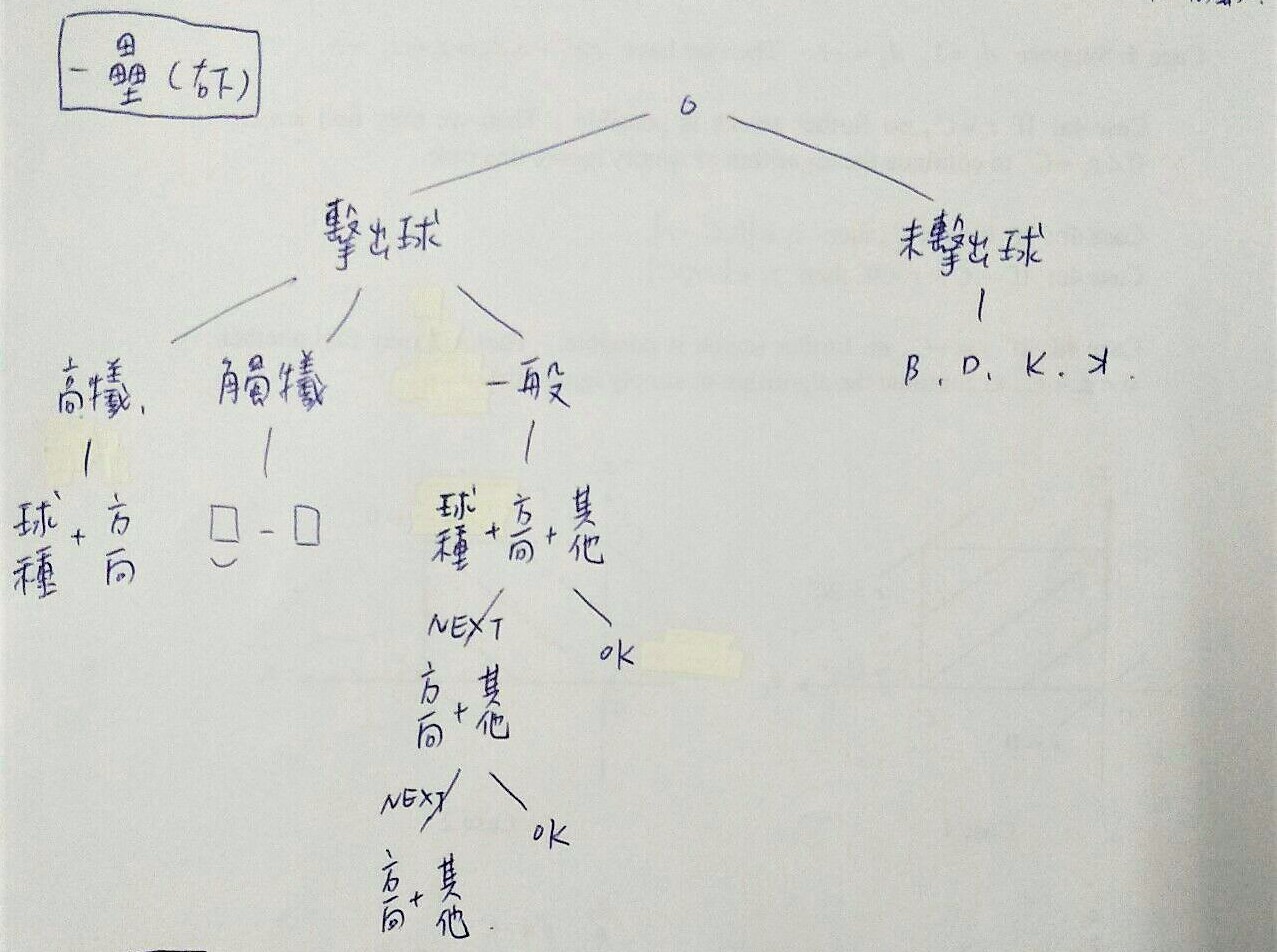 一壘(右下)
擊出球
未擊出球
高犧、
觸犧
一般
B、D、K、ꓘ.
球種 + 方向
□ - □
球種 + 方向 + 其他
NEXT
OK
方向 + 其他
NEXT
OK
方向 + 其他.